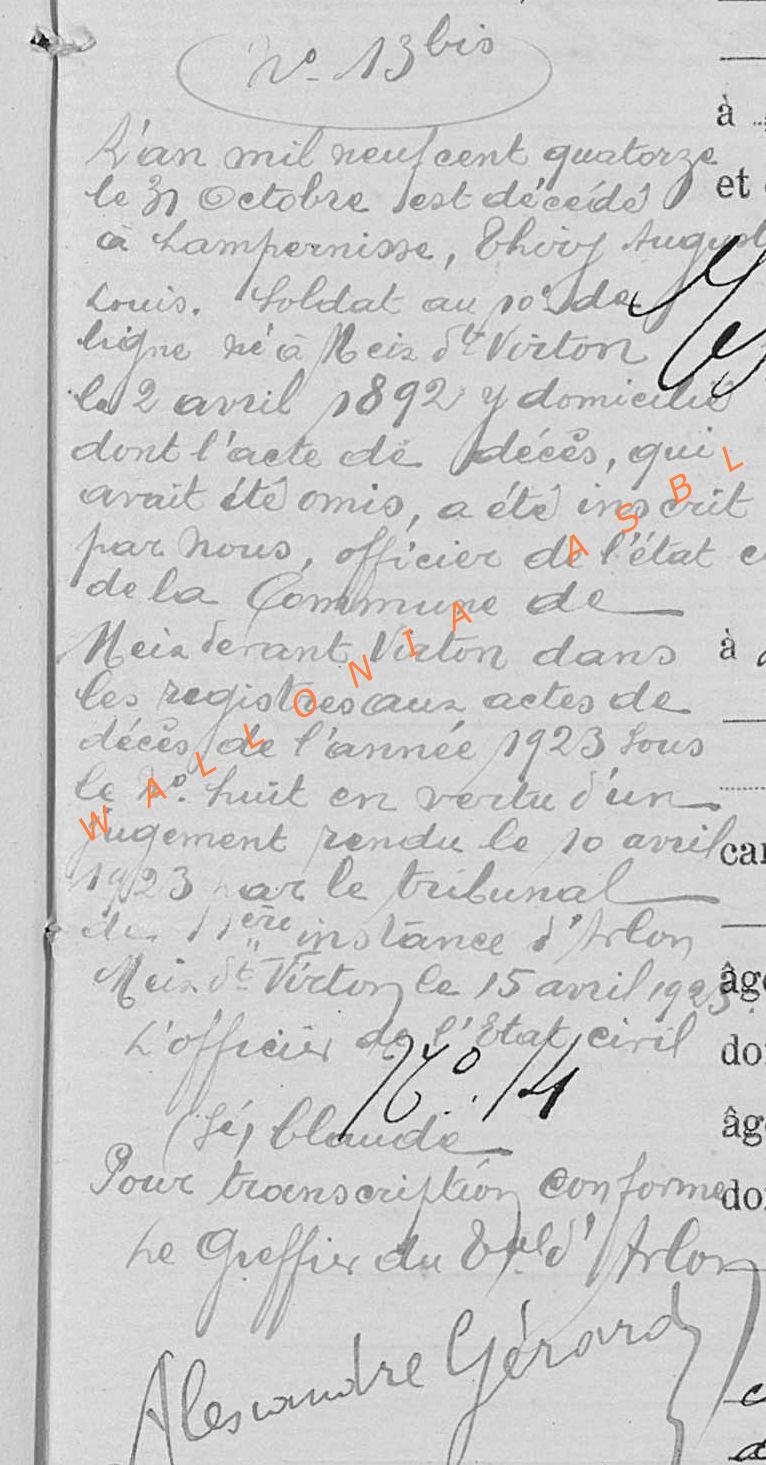 N° 13 bis
L'an mil neuf cent quatorze
le 31 Octobre est décédé
à Lampernisse, Thiry August
Louis. Soldat au 10e de
ligne né à Meix dt Virton
le 2 avril 1892 y domicilié
dont l'acte de décès, qui
avait été omis, a été inscrit
par nous, officier de l'état c
de la Commune de
Meix devant Virton dans
les registres aux actes de
décès de l'année 1923 sous
le N°. huit en vertu d'un
jugement rendu le 10 avril
1923 par le tribunal
de 1ère instance d'Arlon
Meix dt Virton le 15 avril 1923.
L'officier de l'Etat civil
N° 14
(Sé) Claude
Pour transcription conforme
Le Greffier du Tual d'Arlon
Alexandre Gérard
à
et
à
car
âge
dom
âge
dom
WALLONIA ASBL